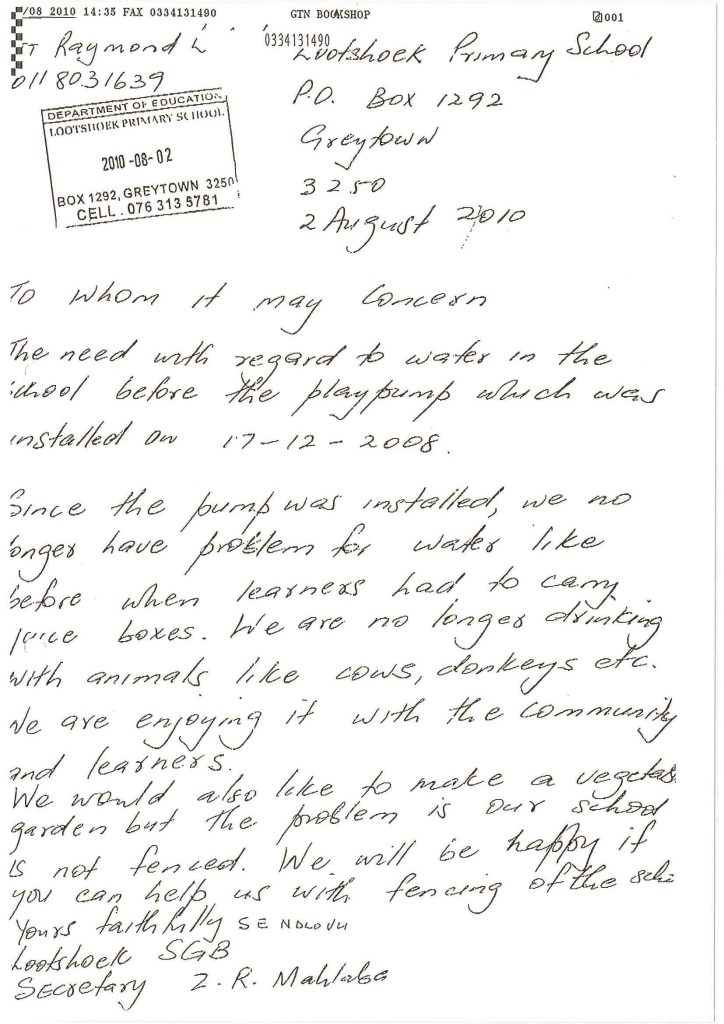 /08 2010 14:35 FAX 0334131490 GTN BOOKSHOP 001
Raymond L
0334131490
Lootshoek Primary School
011 8031639
P.O. Box 1292
Greytown
3250
2 August 2010
DEPARTMENT OF EDUCATION
LOOTSHOEK PRIMARY SCHOOL
2010-08-02
BOX 1292, GREYTOWN 3250
CELL. 076 313 5781
To whom it may Concern
The need with regard to water in the
school before the playpump which was
installed on 17-12-2008.
Since the pump was installed, we no
onger have problem for water like
before when learners had to carry
juice boxes. We are no longer drinking
with animals like cows, donkeys etc.
We are enjoying it with the community
and learners.
We would also like to make a vegetab
garden but the problem is our school
is not fenced. We will be happy if
you can help us with fencing of the sch
Yours faithfully SE NDLOVU
Lootshoek SGB
Secretary Z. R. Mahlaba